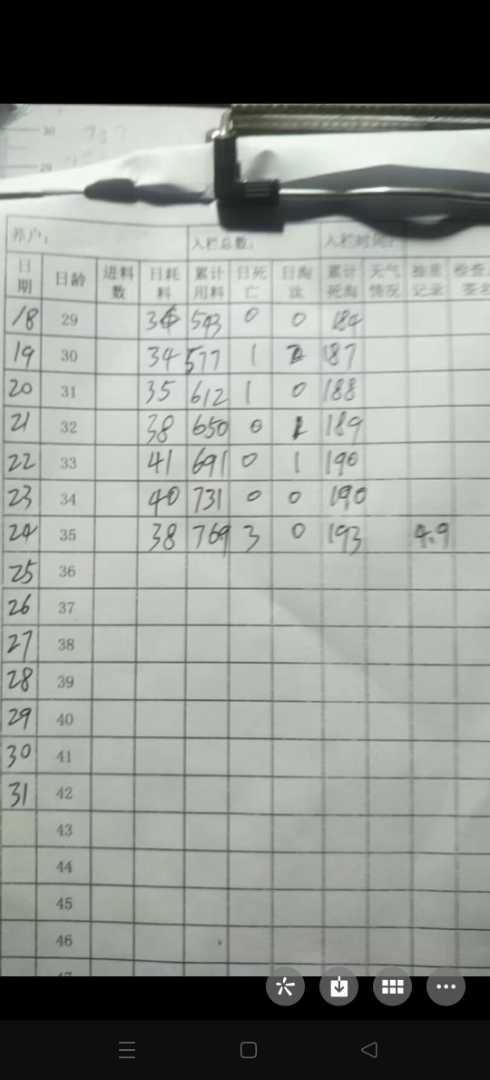 30
29
养户： 入栏总数： 入栏时间：
日期 日龄 进料数 日耗料 累计用料 日死亡 日淘汰 累计死淘 天气情况 抽重记录 检查 签名
18 29 543 0 0 184
19 30 34 577 1 2 187
20 31 35 612 1 0 188
21 32 38 650 0 1 189
22 33 41 691 0 1 190
23 34 40 731 0 0 190
24 35 38 769 3 0 193 4.9
25 36
26 37
27 38
28 39
29 40
30 41
31 42
43
44
45
46